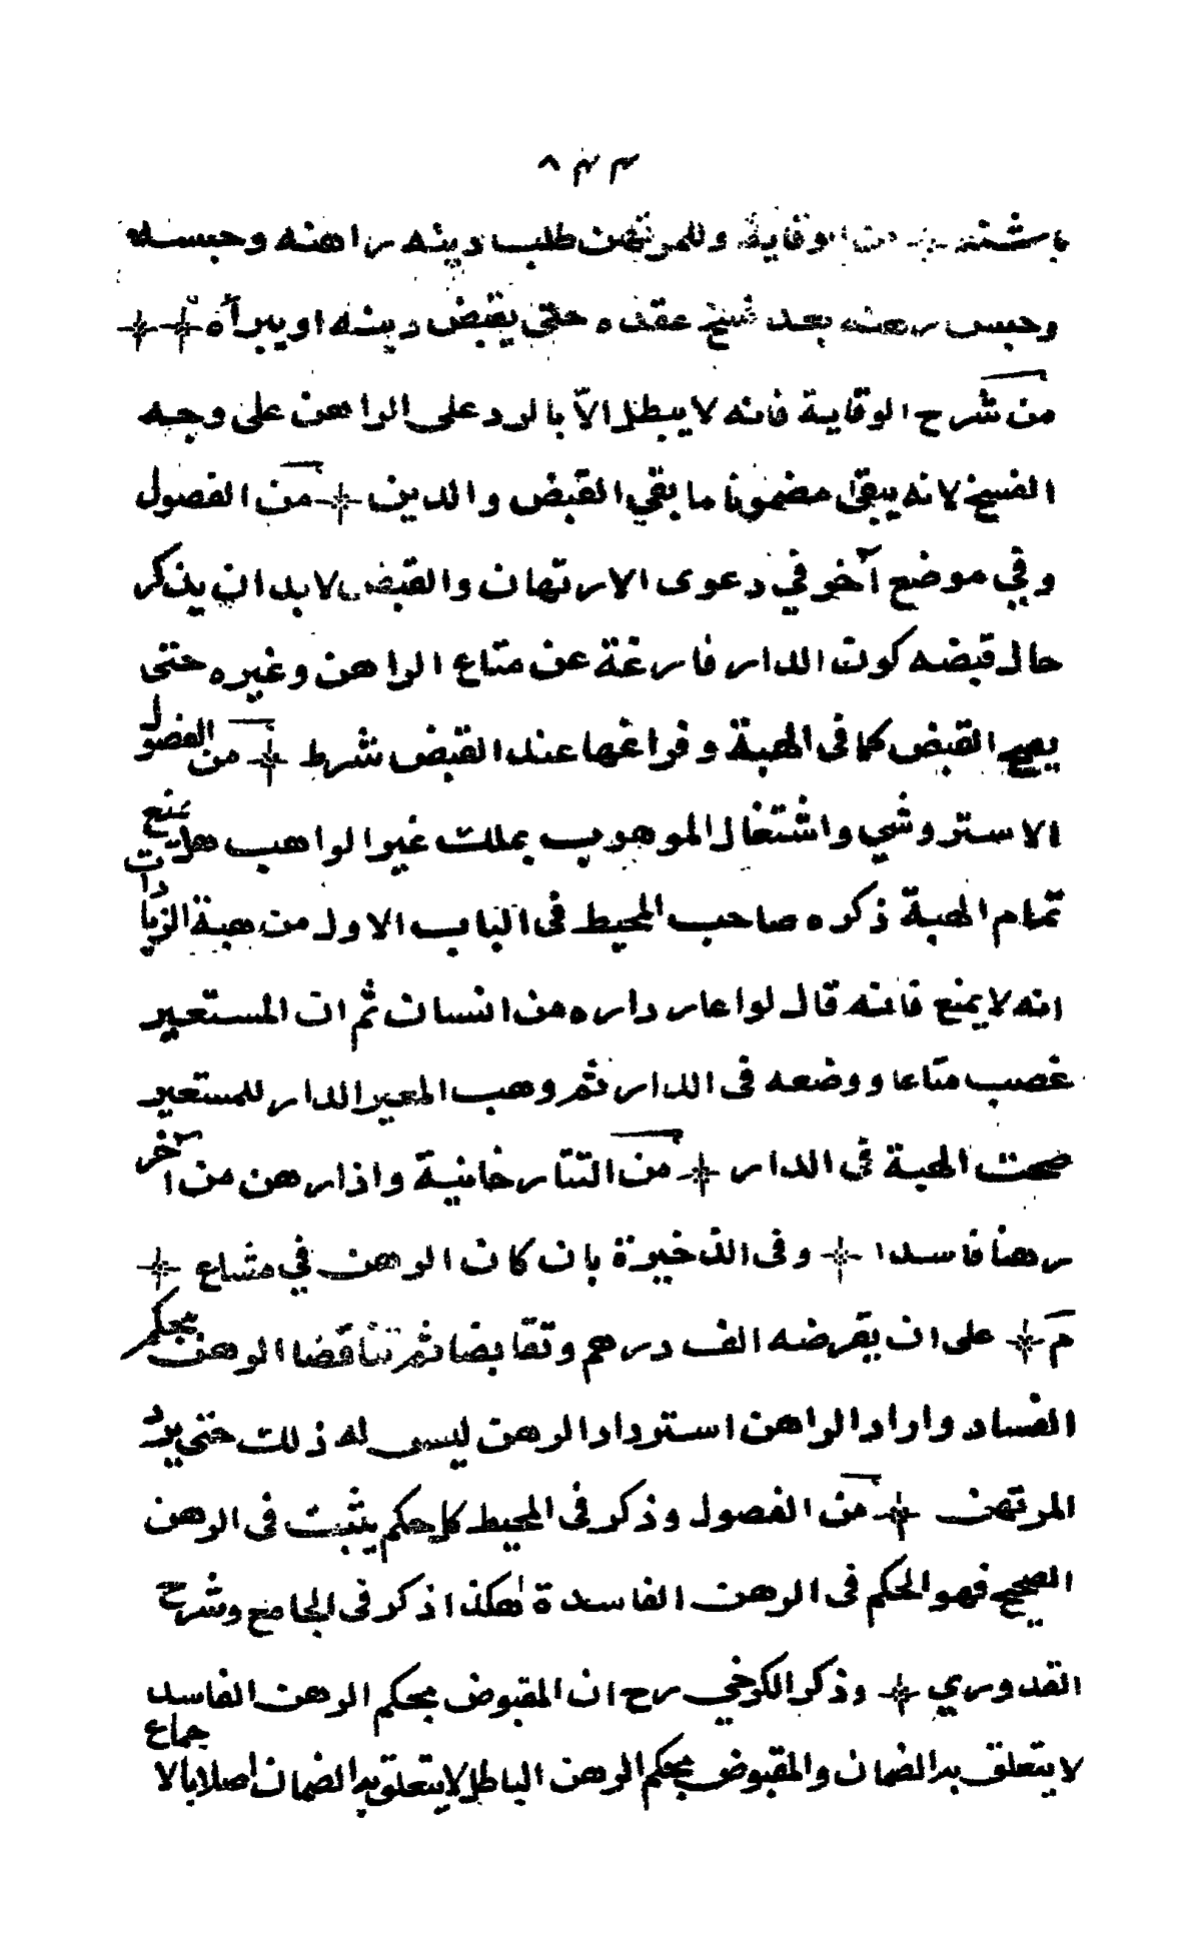 ٨٣٣
الوقاية وللمرتهن طلب دينه راهنه وحبسه
وحبس رهنه بعد فسخ عقده حتى يقبض دينه او يبرأه
من شرح الوقاية فانه لا يبطل الاّ بالرد على الراهن على وجه
الفسخ لانه يبقى مضمونا ما بقي القبض والدين من الفصول
وفي موضع آخر في دعوى الارتهان والقبض لا بد ان يذكر
حال قبضه كون الدار فارغة عن متاع الراهن وغيره حتى
يصح القبض كما فى الهبة وفراغها عند القبض شرط من الفصول
الاستروشي واشتغال الموهوب بملك غير الواهب هل يمنع
تمام الهبة ذكره صاحب المحيط فى الباب الاول من هبة الزيادات
انه لا يمنع فانه قال لو اعار داره من انسان ثم ان المستعير
غصب متاعا ووضعه فى الدار ثم وهب المعير الدار للمستعير
صحت الهبة فى الدار من التتارخانية واذا رهن من آخر
رهنا فاسدا وفى الذخيرة بان كان الرهن في مشاع
م على ان يقرضه الف درهم وتقابضا ثم تناقضا الرهن بحكم
الفساد واراد الراهن استرداد الرهن ليس له ذلك حتى يرد
المرتهن من الفصول وذكر فى المحيط كل حكم يثبت فى الرهن
الصحيح فهو الحكم فى الرهن الفاسدة هكذا ذكر فى الجامع وشرح
القدوري وذكر الكرخي رح ان المقبوض بحكم الرهن الفاسد
لا يتعلق به الضمان والمقبوض بحكم الرهن الباطل لا يتعلق به الضمان اصلا بالاجماع